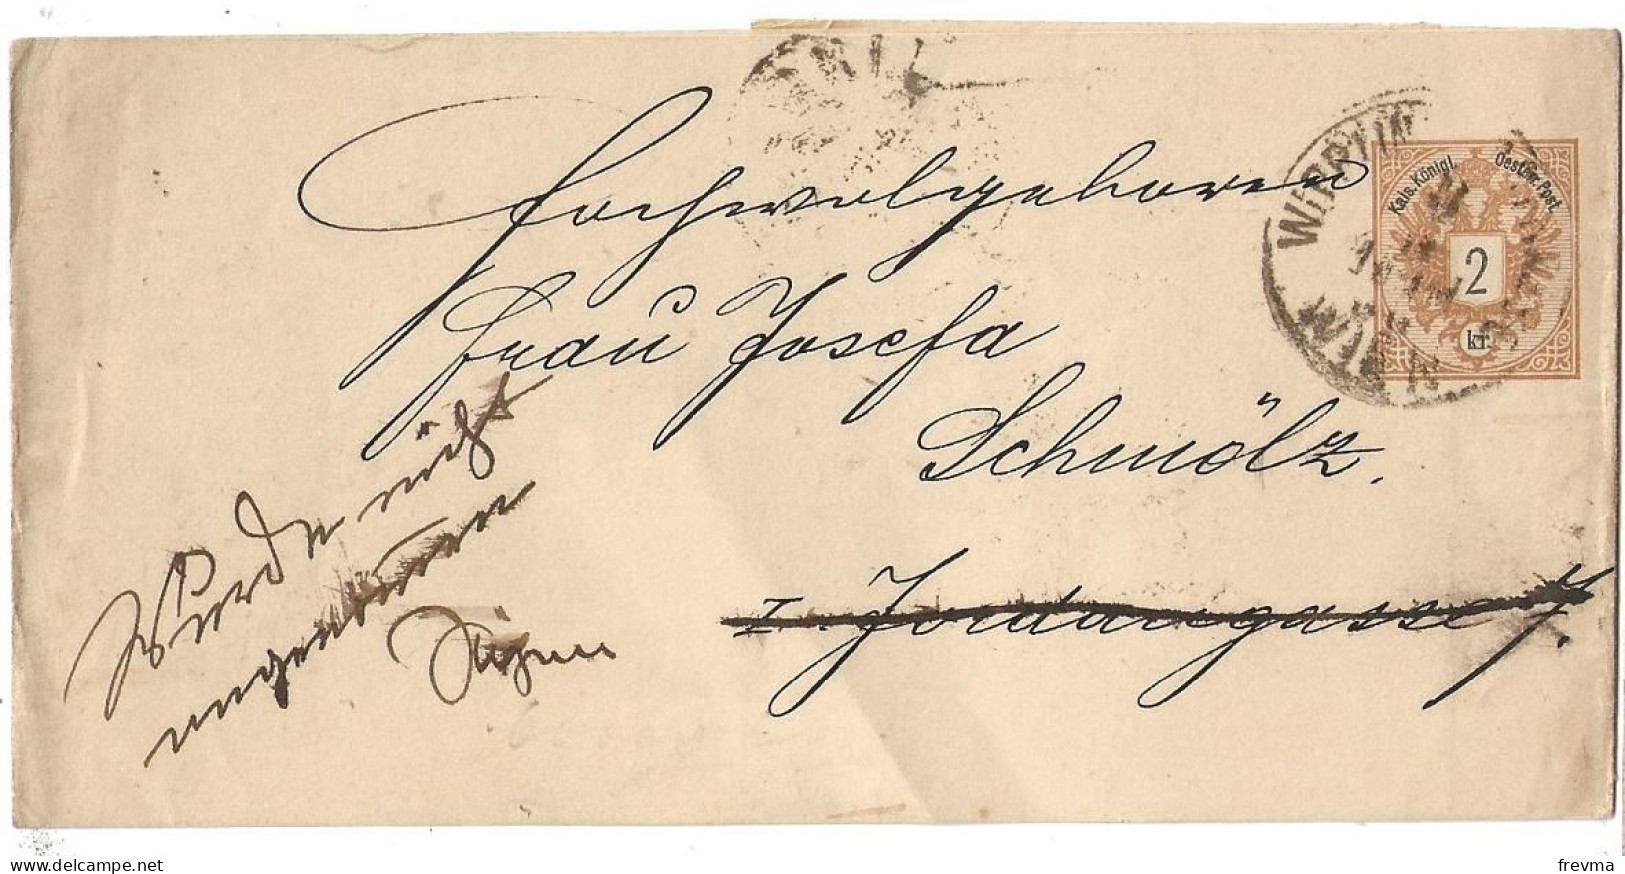 Kais. Königl. Oesterr. Post.
2
kr.
WIEN
Hochwolgeboren
Frau Josefa
Schmölz.
I. Jordangasse 7.
Wurde nicht
angenommen
delcampe.net
frevma